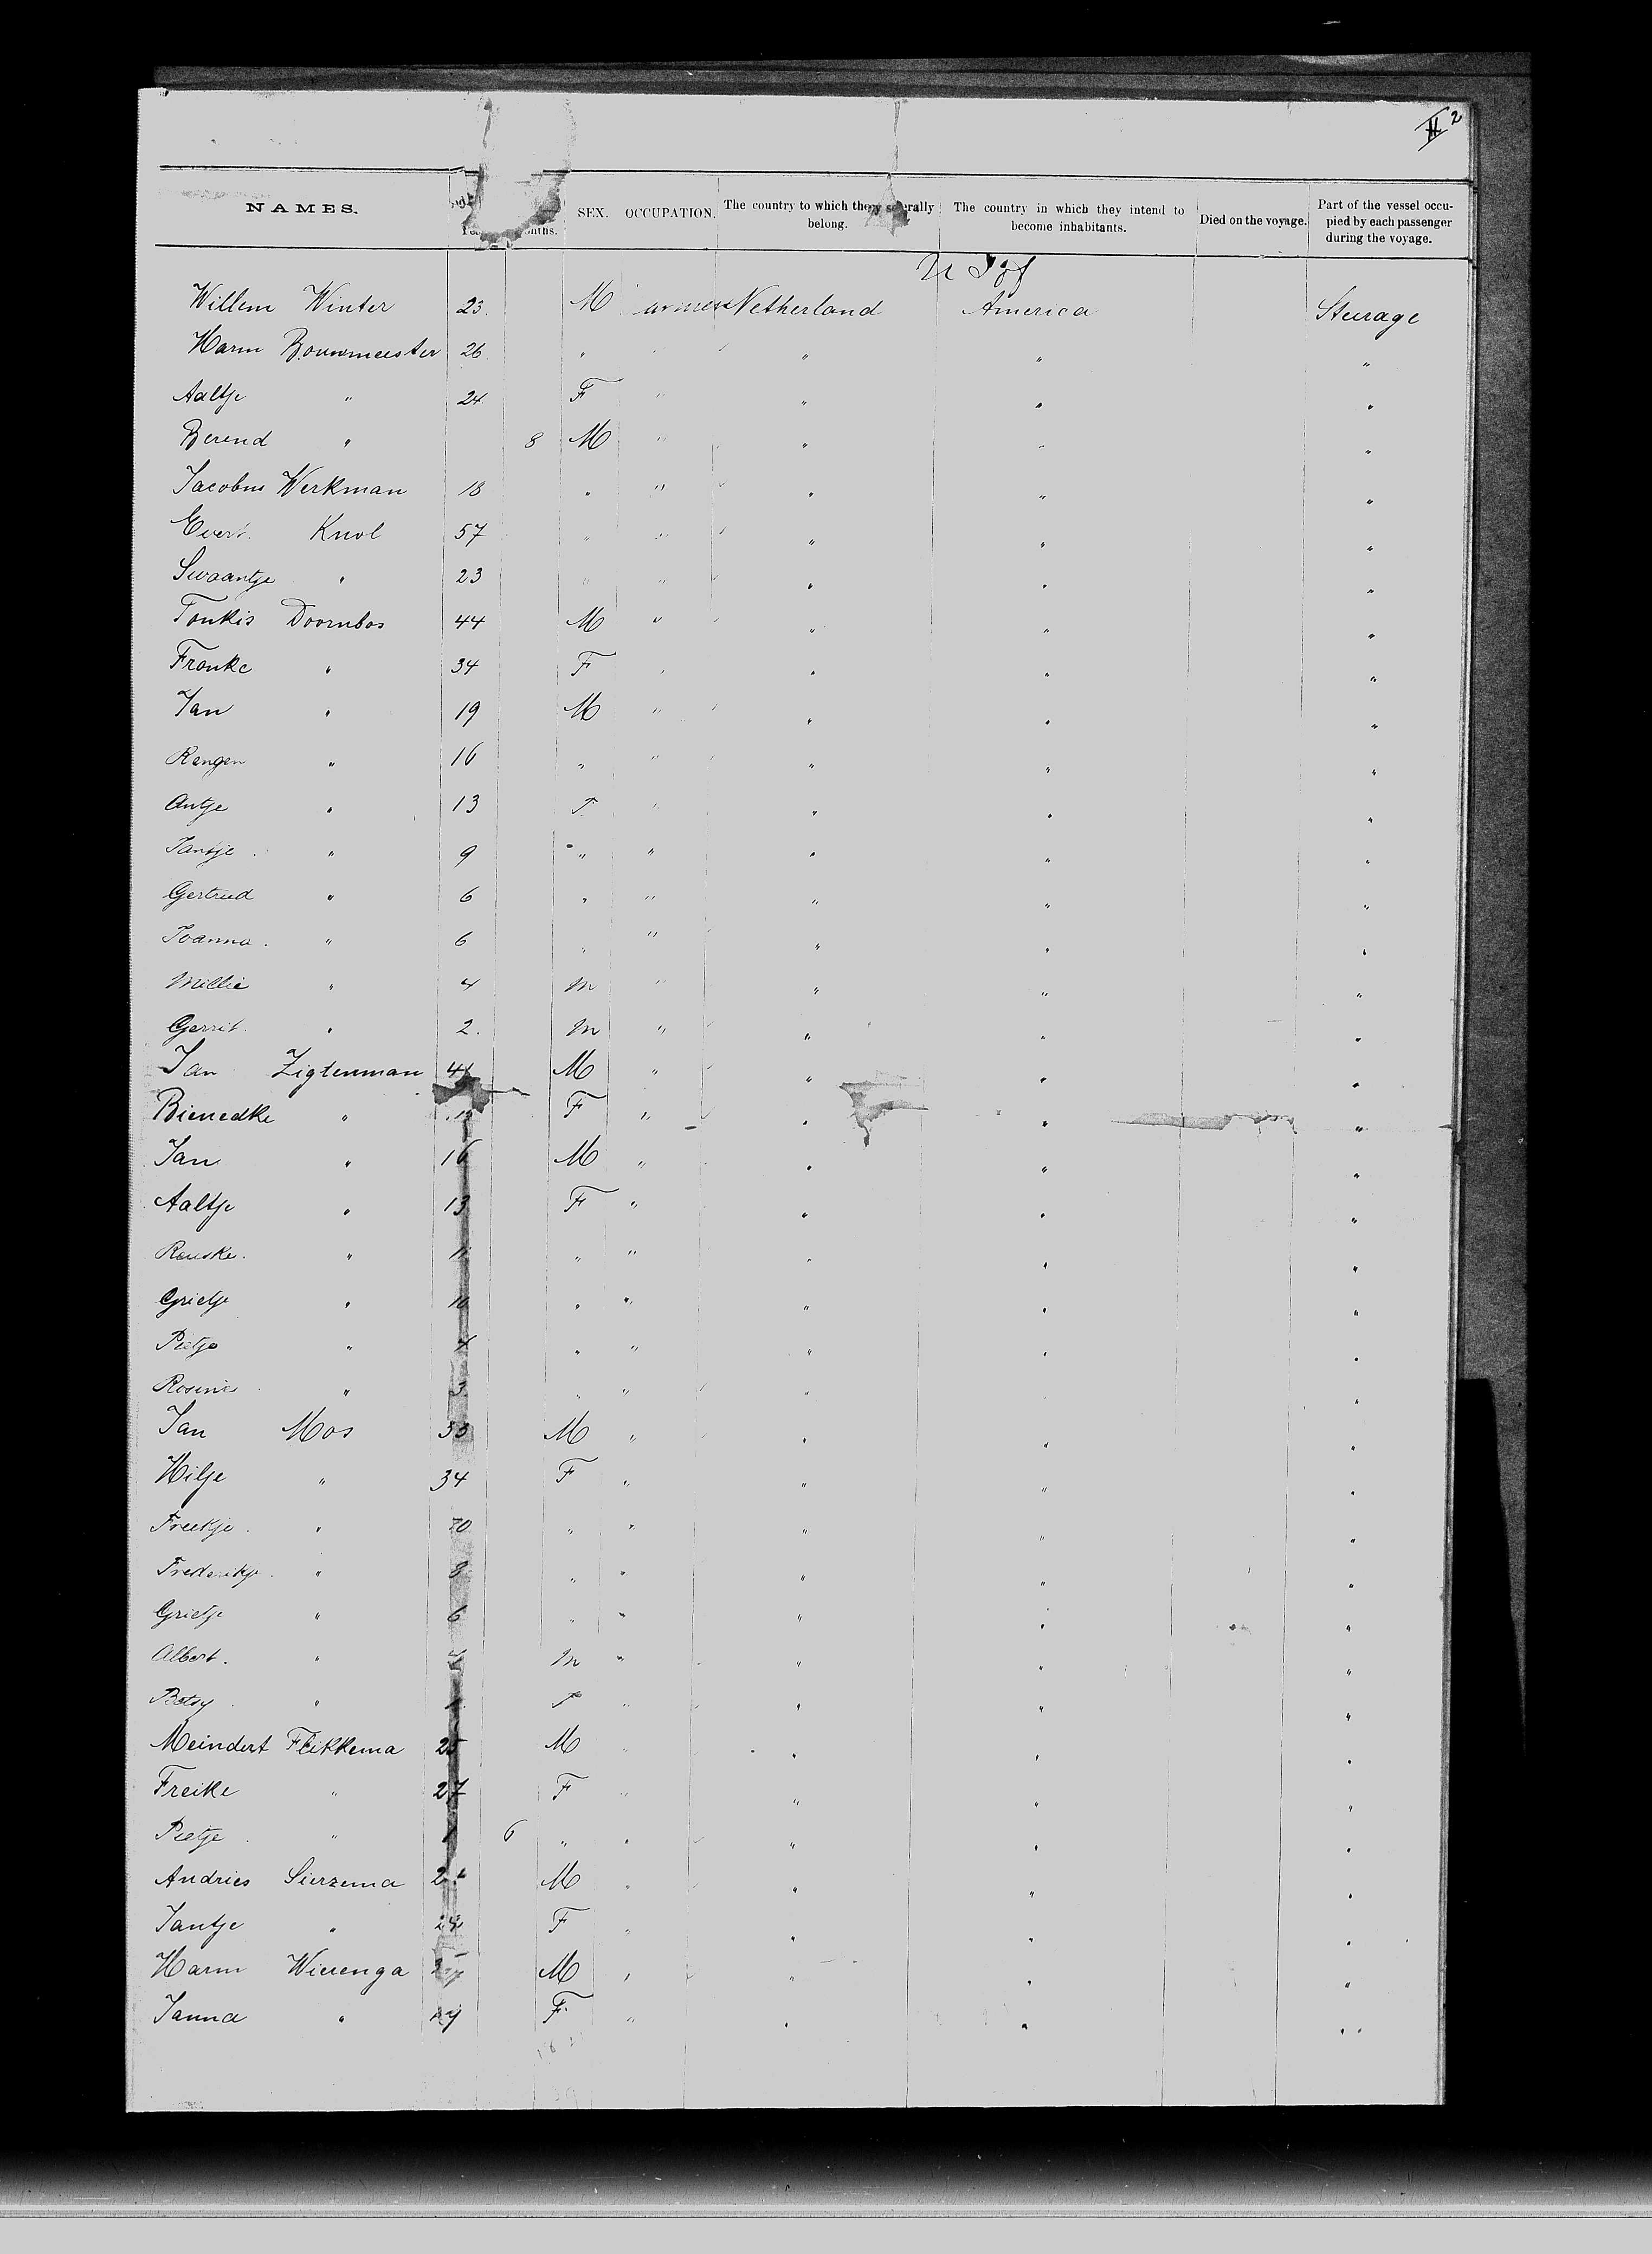 2
NAMES. SEX. OCCUPATION. The country to which they severally belong. The country in which they intend to become inhabitants. Died on the voyage. Part of the vessel occupied by each passenger during the voyage.
U S of
Willem Winter 23. M Netherland America Steerage
Harm Bouwmeester 26 " " " " "
Aaltje " 24 F " " " "
Berend " 8 M " " " "
Jacobus Werkman 18 " " " " "
Evert Knol 57 " " " " "
Swaantje " 23 " " " " "
Tonkis Doornbos 44 M " " " "
Frouke " 34 F " " " "
Jan " 19 M " " " "
Rengen " 16 " " " " "
Antje " 13 F " " " "
Jantje " 9 " " " " "
Gertrud " 6 " " " " "
Joanna " 6 " " " " "
Millie " 4 M " " " "
Gerrit " 2. M " " " "
Jan Zigtenman M " " " "
Bienedke " F " " " "
Jan " 16 M " " " "
Aaltje " 13 F " " " "
Renske " 11 " " " " "
Grietje " 10 " " " " "
Pietje " 4 " " " " "
Rosine " 3 " " " " "
Jan Mos 33 M " " " "
Hilje " 34 F " " " "
Freekje " " " " " "
Frederikje " 8 " " " " "
Grietje " 6 " " " " "
Albert " M " " " "
Betsy " 1 F " " " "
Meindert Flikkema 25 M " " " "
Freike " 27 F " " " "
Pietje " 1 6 " " " " "
Andries Sierzema M " " " "
Jantje " F " " " "
Harm Wierenga M " " " "
Janna " F " " " "